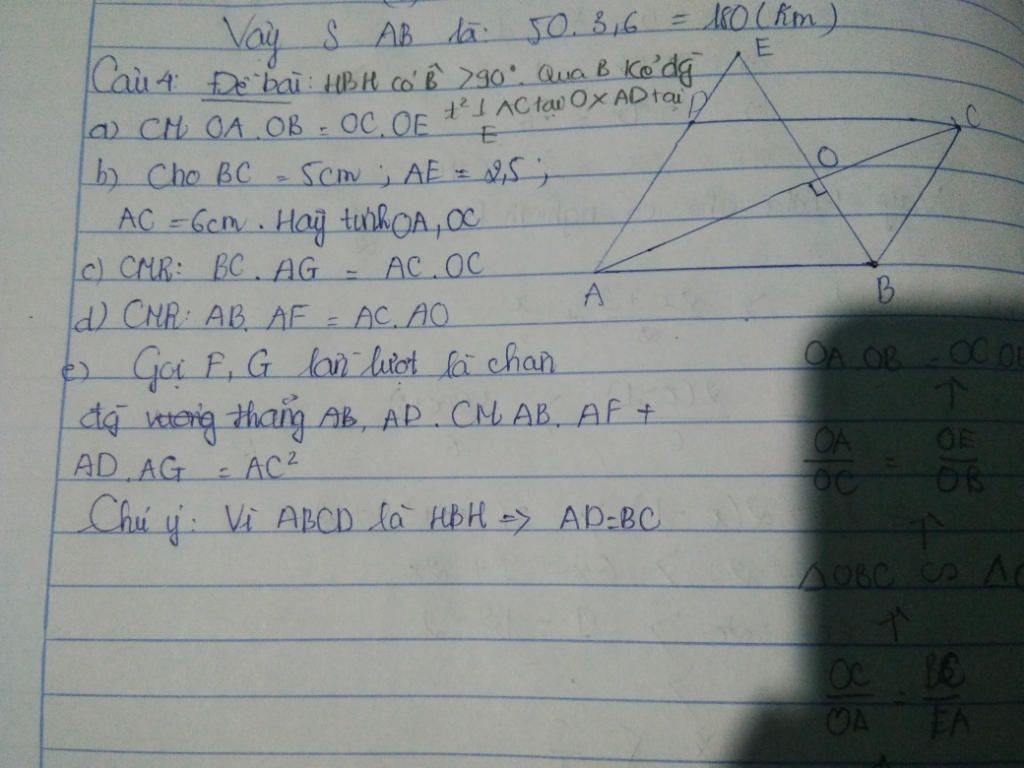 Vậy S AB là: 50. 3,6 = 180 (km)
Câu 4: Đề bài: HBH có B̂ >90°. Qua B kẻ đg
t² ⊥ AC tại O x AD tại
E
a) CM OA.OB = OC.OE
b) Cho BC = 5cm ; AE = 2,5 ;
AC = 6cm. Hãy tính OA, OC
c) CMR: BC. AG = AC. OC
d) CMR: AB. AF = AC. AO
e) Gọi F, G lần lượt là chân
đg vuông thẳng AB, AD. CM AB. AF +
AD.AG = AC²
Chú ý: Vì ABCD là HBH => AD=BC
E
D
C
O
A
B
OA.OB = OC.OE
↑
OA/OC = OE/OB
↑
ΔOBC ∽
↑
OC/OA = BC/EA